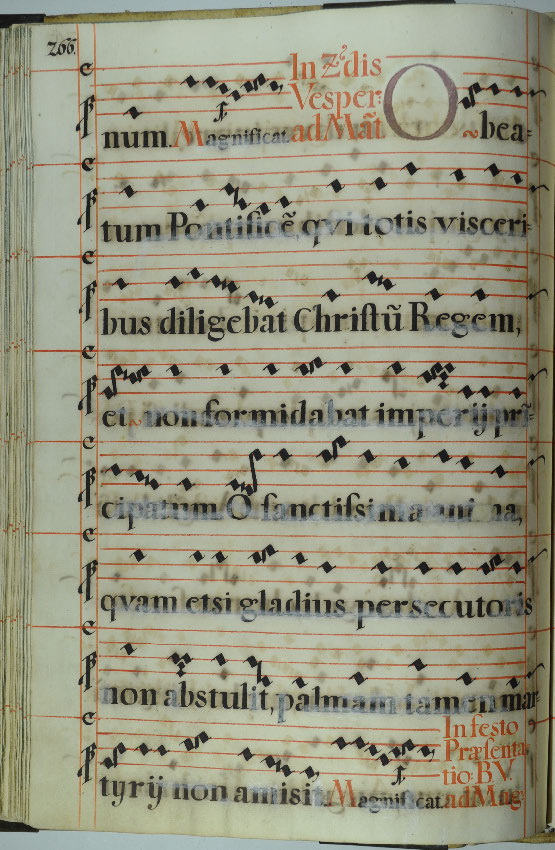 266.
In 2.dis
Vesper:
num. Magnificat. ad Mat. O bea-
tum Pontificẽ, qvi totis visceri-
bus diligebat Christũ Regem,
et non formidabat imperij prĩ-
cipatum. O sanctissima anima,
qvam etsi gladius persecutoris
non abstulit, palmam tamen mar-
In festo
Præsenta-
tio: B.V.
tyrij non amisit. Magnificat. ad Mag: